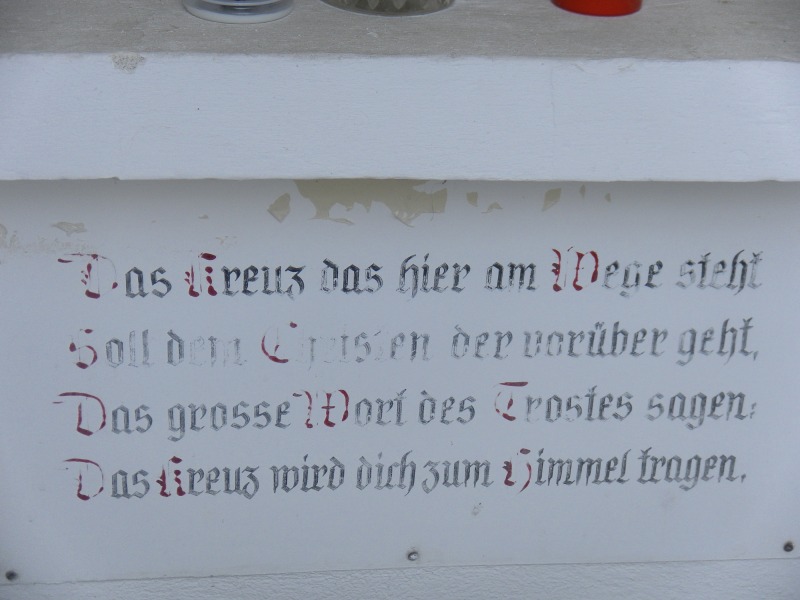 Das Kreuz das hier am Wege steht
Soll dem Christen der vorüber geht,
Das grosse Wort des Trostes sagen:
Das Kreuz wird dich zum Himmel tragen.